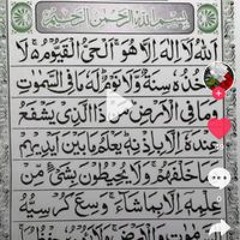 بِسْمِ اللهِ الرَّحْمٰنِ الرَّحِيْمِ
اَللهُ لَآ اِلٰهَ اِلَّا هُوَ ۚ اَلْحَيُّ الْقَيُّوْمُ ۚ لَا
خُذُهٗ سِنَةٌ وَّلَا نَوْمٌ ؕ لَهٗ مَا فِي السَّمٰوٰتِ
وَمَا فِي الْاَرْضِ ؕ مَنْ ذَا الَّذِيْ يَشْفَعُ
عِنْدَهٗٓ اِلَّا بِاِذْنِهٖ ؕ يَعْلَمُ مَا بَيْنَ اَيْدِيْهِمْ
مَا خَلْفَهُمْ ۚ وَلَا يُحِيْطُوْنَ بِشَيْءٍ مِّنْ
عِلْمِهٖٓ اِلَّا بِمَا شَآءَ ۚ وَسِعَ كُرْسِيُّهُ